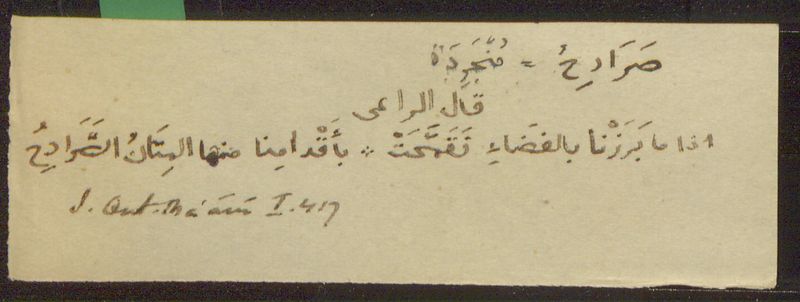 صَرَادِحُ = مُنْجَرِدَة
قال الراعى
اذا ما بَرَزْنا بالفَضَاءِ تَقَحَّمَتْ * بأَقْدامِنا منها المِتَانُ الصَّرَادِحُ
I. Qut. Ma'ânî I. 417